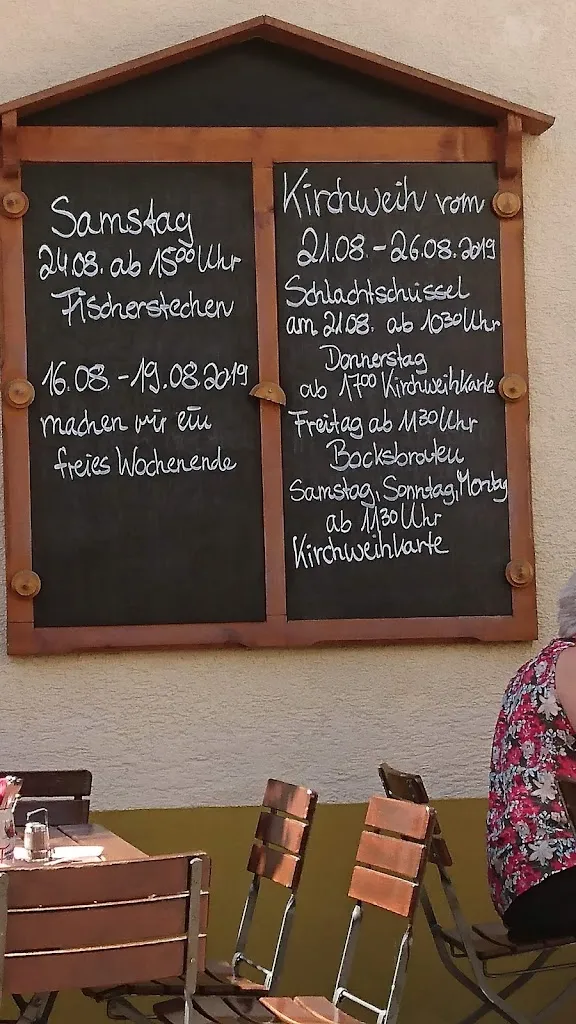 Samstag
24.08. ab 15⁰⁰ Uhr
Fischerstechen
16.08. - 19.08.2019
machen wir ein
freies Wochenende
Kirchweih vom
21.08. - 26.08.2019
Schlachtschüssel
am 21.08. ab 10³⁰ Uhr
Donnerstag
ab 17⁰⁰ Kirchweihkarte
Freitag ab 11³⁰ Uhr
Bocksbraten
Samstag, Sonntag, Montag
ab 11³⁰ Uhr
Kirchweihkarte